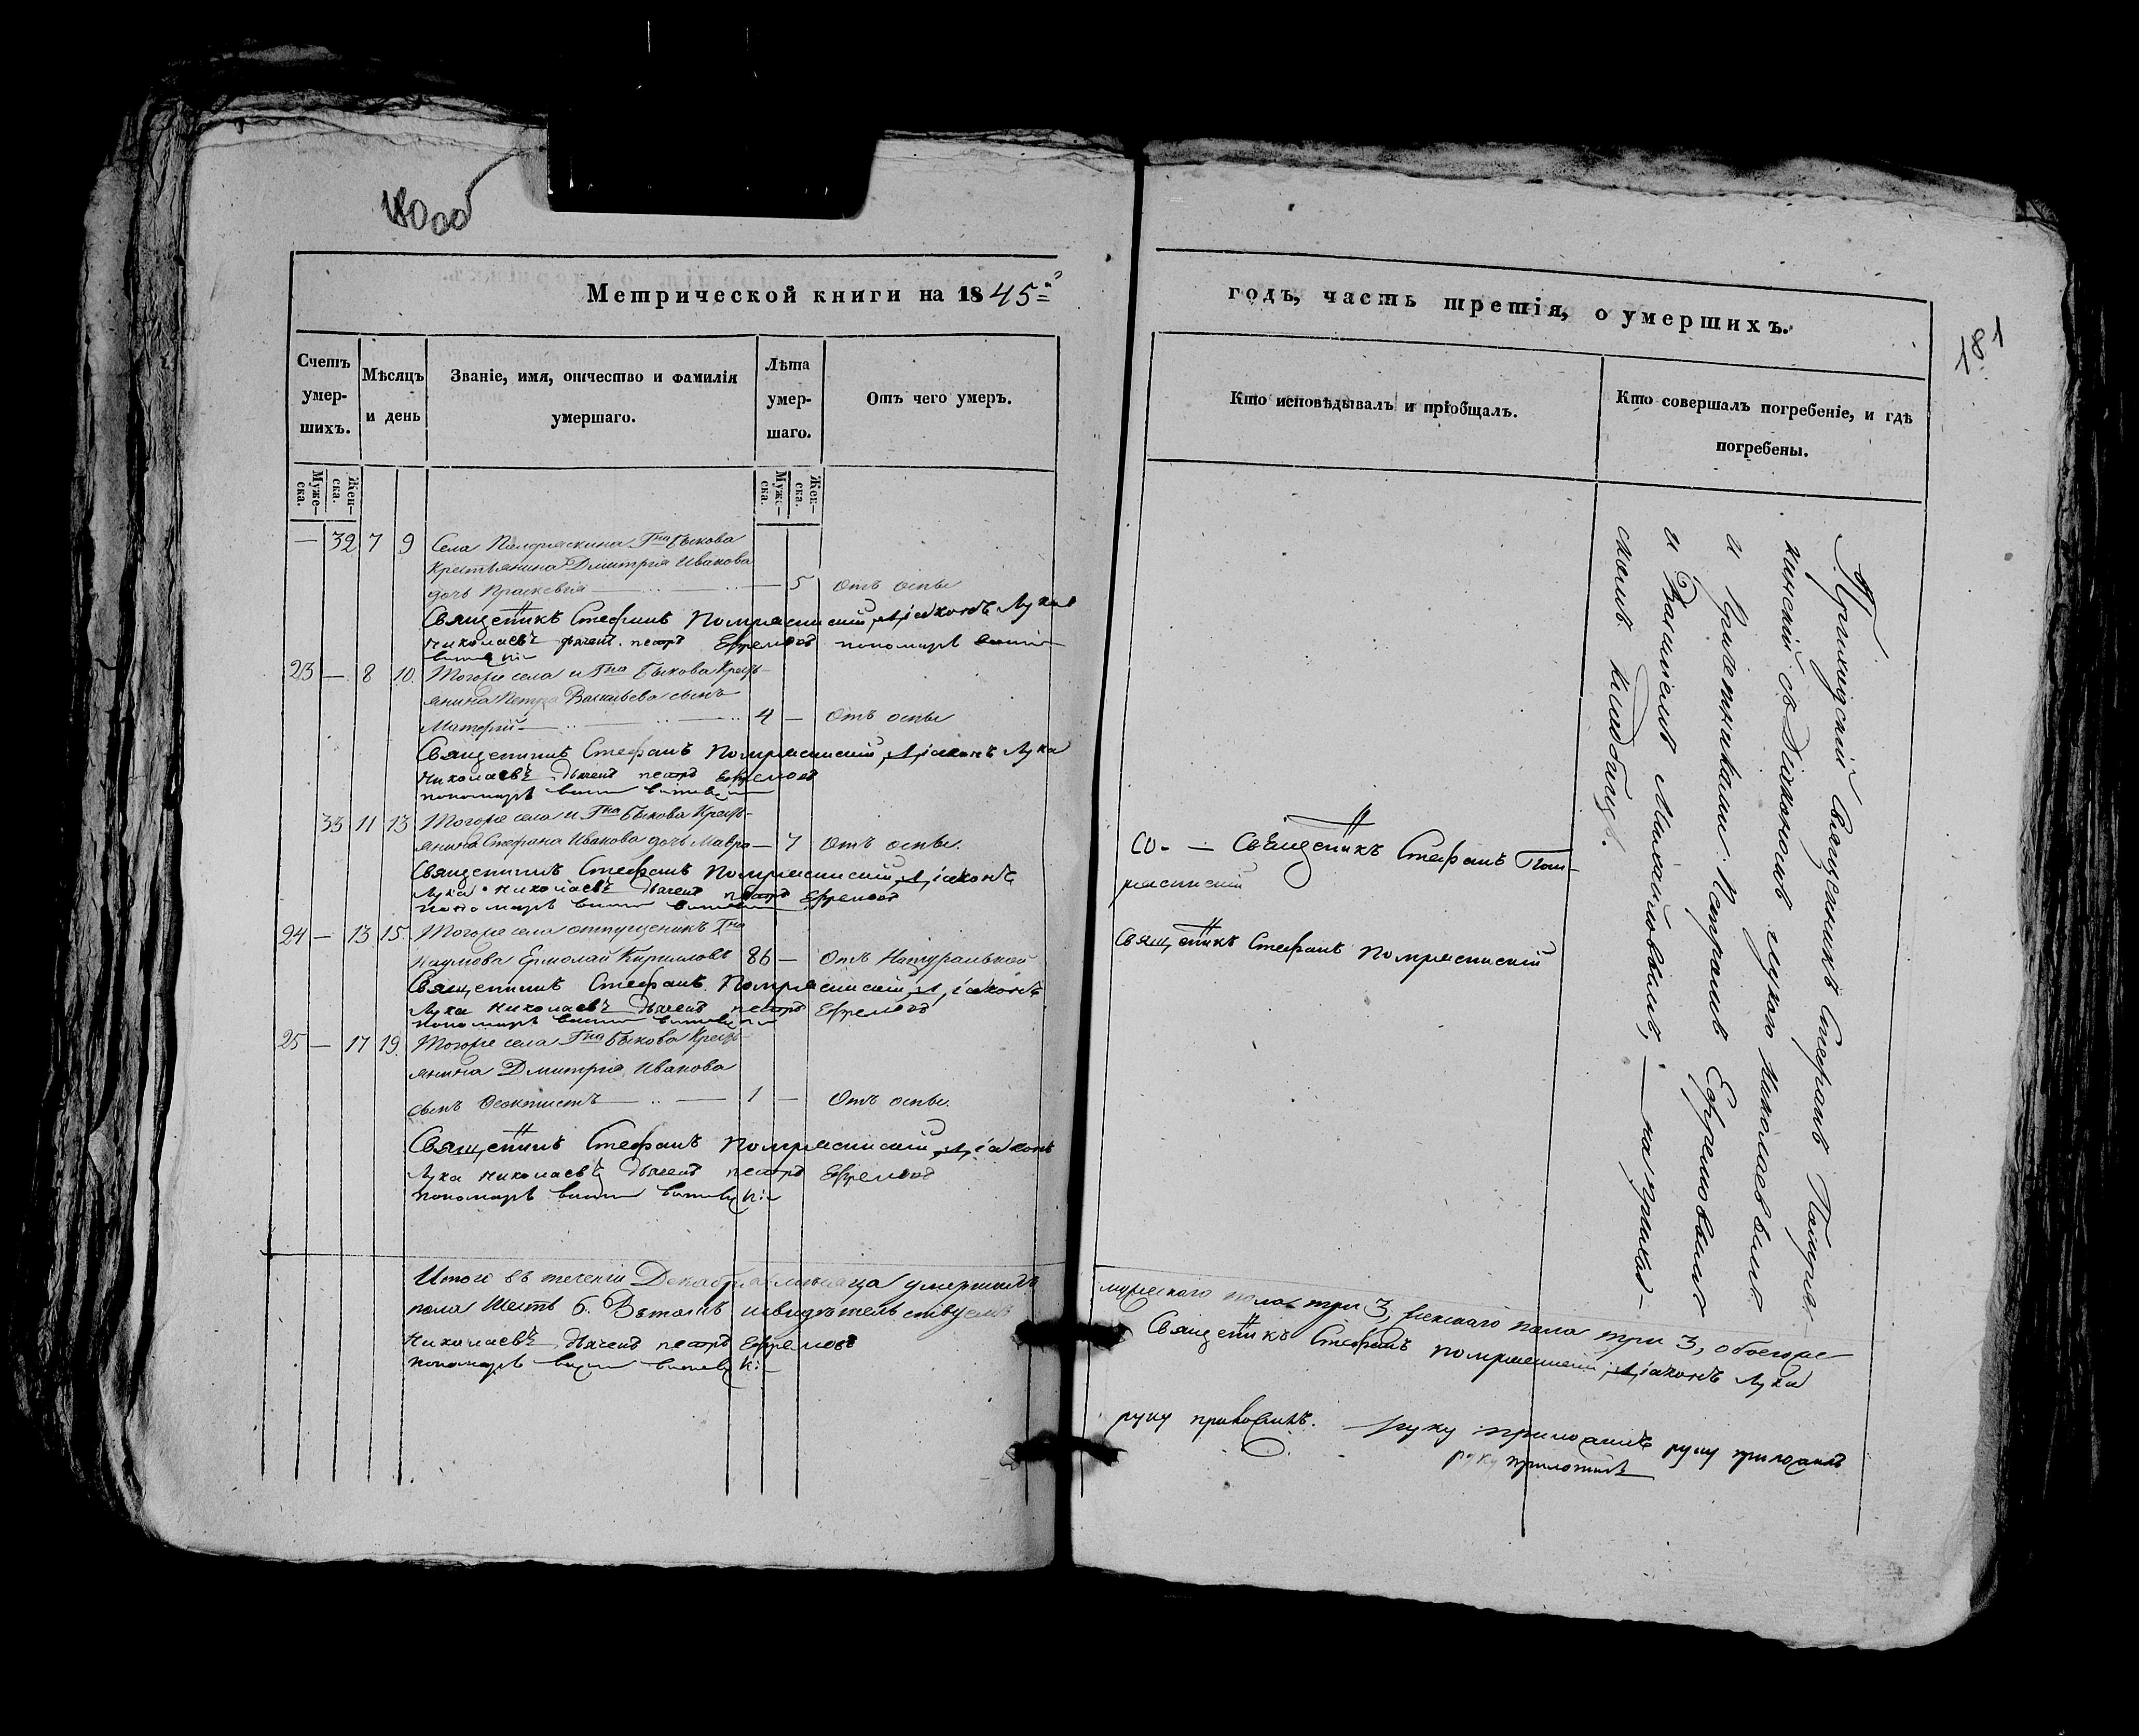 180 об
181
Метрической книги на 1845й
годъ, часть третія, о умершихъ.
Счетъ умер- шихъ.
Мѣсяцъ и день
Званіе, имя, отчество и фамилія умершаго.
Лѣта умер- шаго.
Отъ чего умеръ.
Кто исповѣдывалъ и пріобщалъ.
Кто совершалъ погребеніе, и гдѣ погребены.
Муже- ска.
Жен- ска.
Муже- ска.
Жен- ска.
— 32 7 9 Села Гна Быкова
Крестьянина Дмитрія Иванова
дочь Праскевія — 5 Отъ оспы
Священникъ Стефанъ Діаконъ Лука
Николаевъ дьячекъ Петръ Ефремовъ пономарь
23 — 8 10 Тогоже села и Гна Быкова Кресть-
янина Петра Васильева сынъ
4 — Отъ оспы
Священникъ Стефанъ Діаконъ Лука
Николаевъ дьячекъ Петръ Ефремовъ
пономарь
33 11 13 Тогоже села и Гна Быкова Кресть-
янина Стефана Иванова дочь Мавра — 7 Отъ оспы.
Священникъ Стефанъ Діаконъ
Лука Николаевъ дьячекъ Петръ Ефремовъ
пономарь
24 — 13 15 Тогоже села отпущеникъ Гна
Наумова Ермолай Кирилловъ 86 — Отъ Натуральной
Священникъ Стефанъ Діаконъ
Лука Николаевъ дьячекъ Петръ Ефремовъ
пономарь
25 — 17 19 Тогоже села Гна Быкова Кресть-
янина Дмитрія Иванова
сынъ Феоктистъ — 1 — Отъ оспы.
Священникъ Стефанъ Діаконъ
Лука Николаевъ дьячекъ Петръ Ефремовъ
пономарь
Итого въ теченіи Декабря мѣсяца умершихъ
мужескаго пола три 3, женскаго пола три 3, обоегоже
пола Шесть 6. Въ томъ и свидѣтельствуемъ
Священникъ Стефанъ Діаконъ Лука
Николаевъ дьячекъ Петръ Ефремовъ
пономарь
руку приложилъ. руку приложилъ руку приложилъ
руку приложилъ
Священникъ Стефанъ
Священникъ Стефанъ
Приходскій Священникъ Стефанъ
съ Діакономъ Лукою Николаевымъ
и Причетниками: Петромъ Ефремовымъ
и Василіемъ — на приход-
скомъ кладбищѣ.